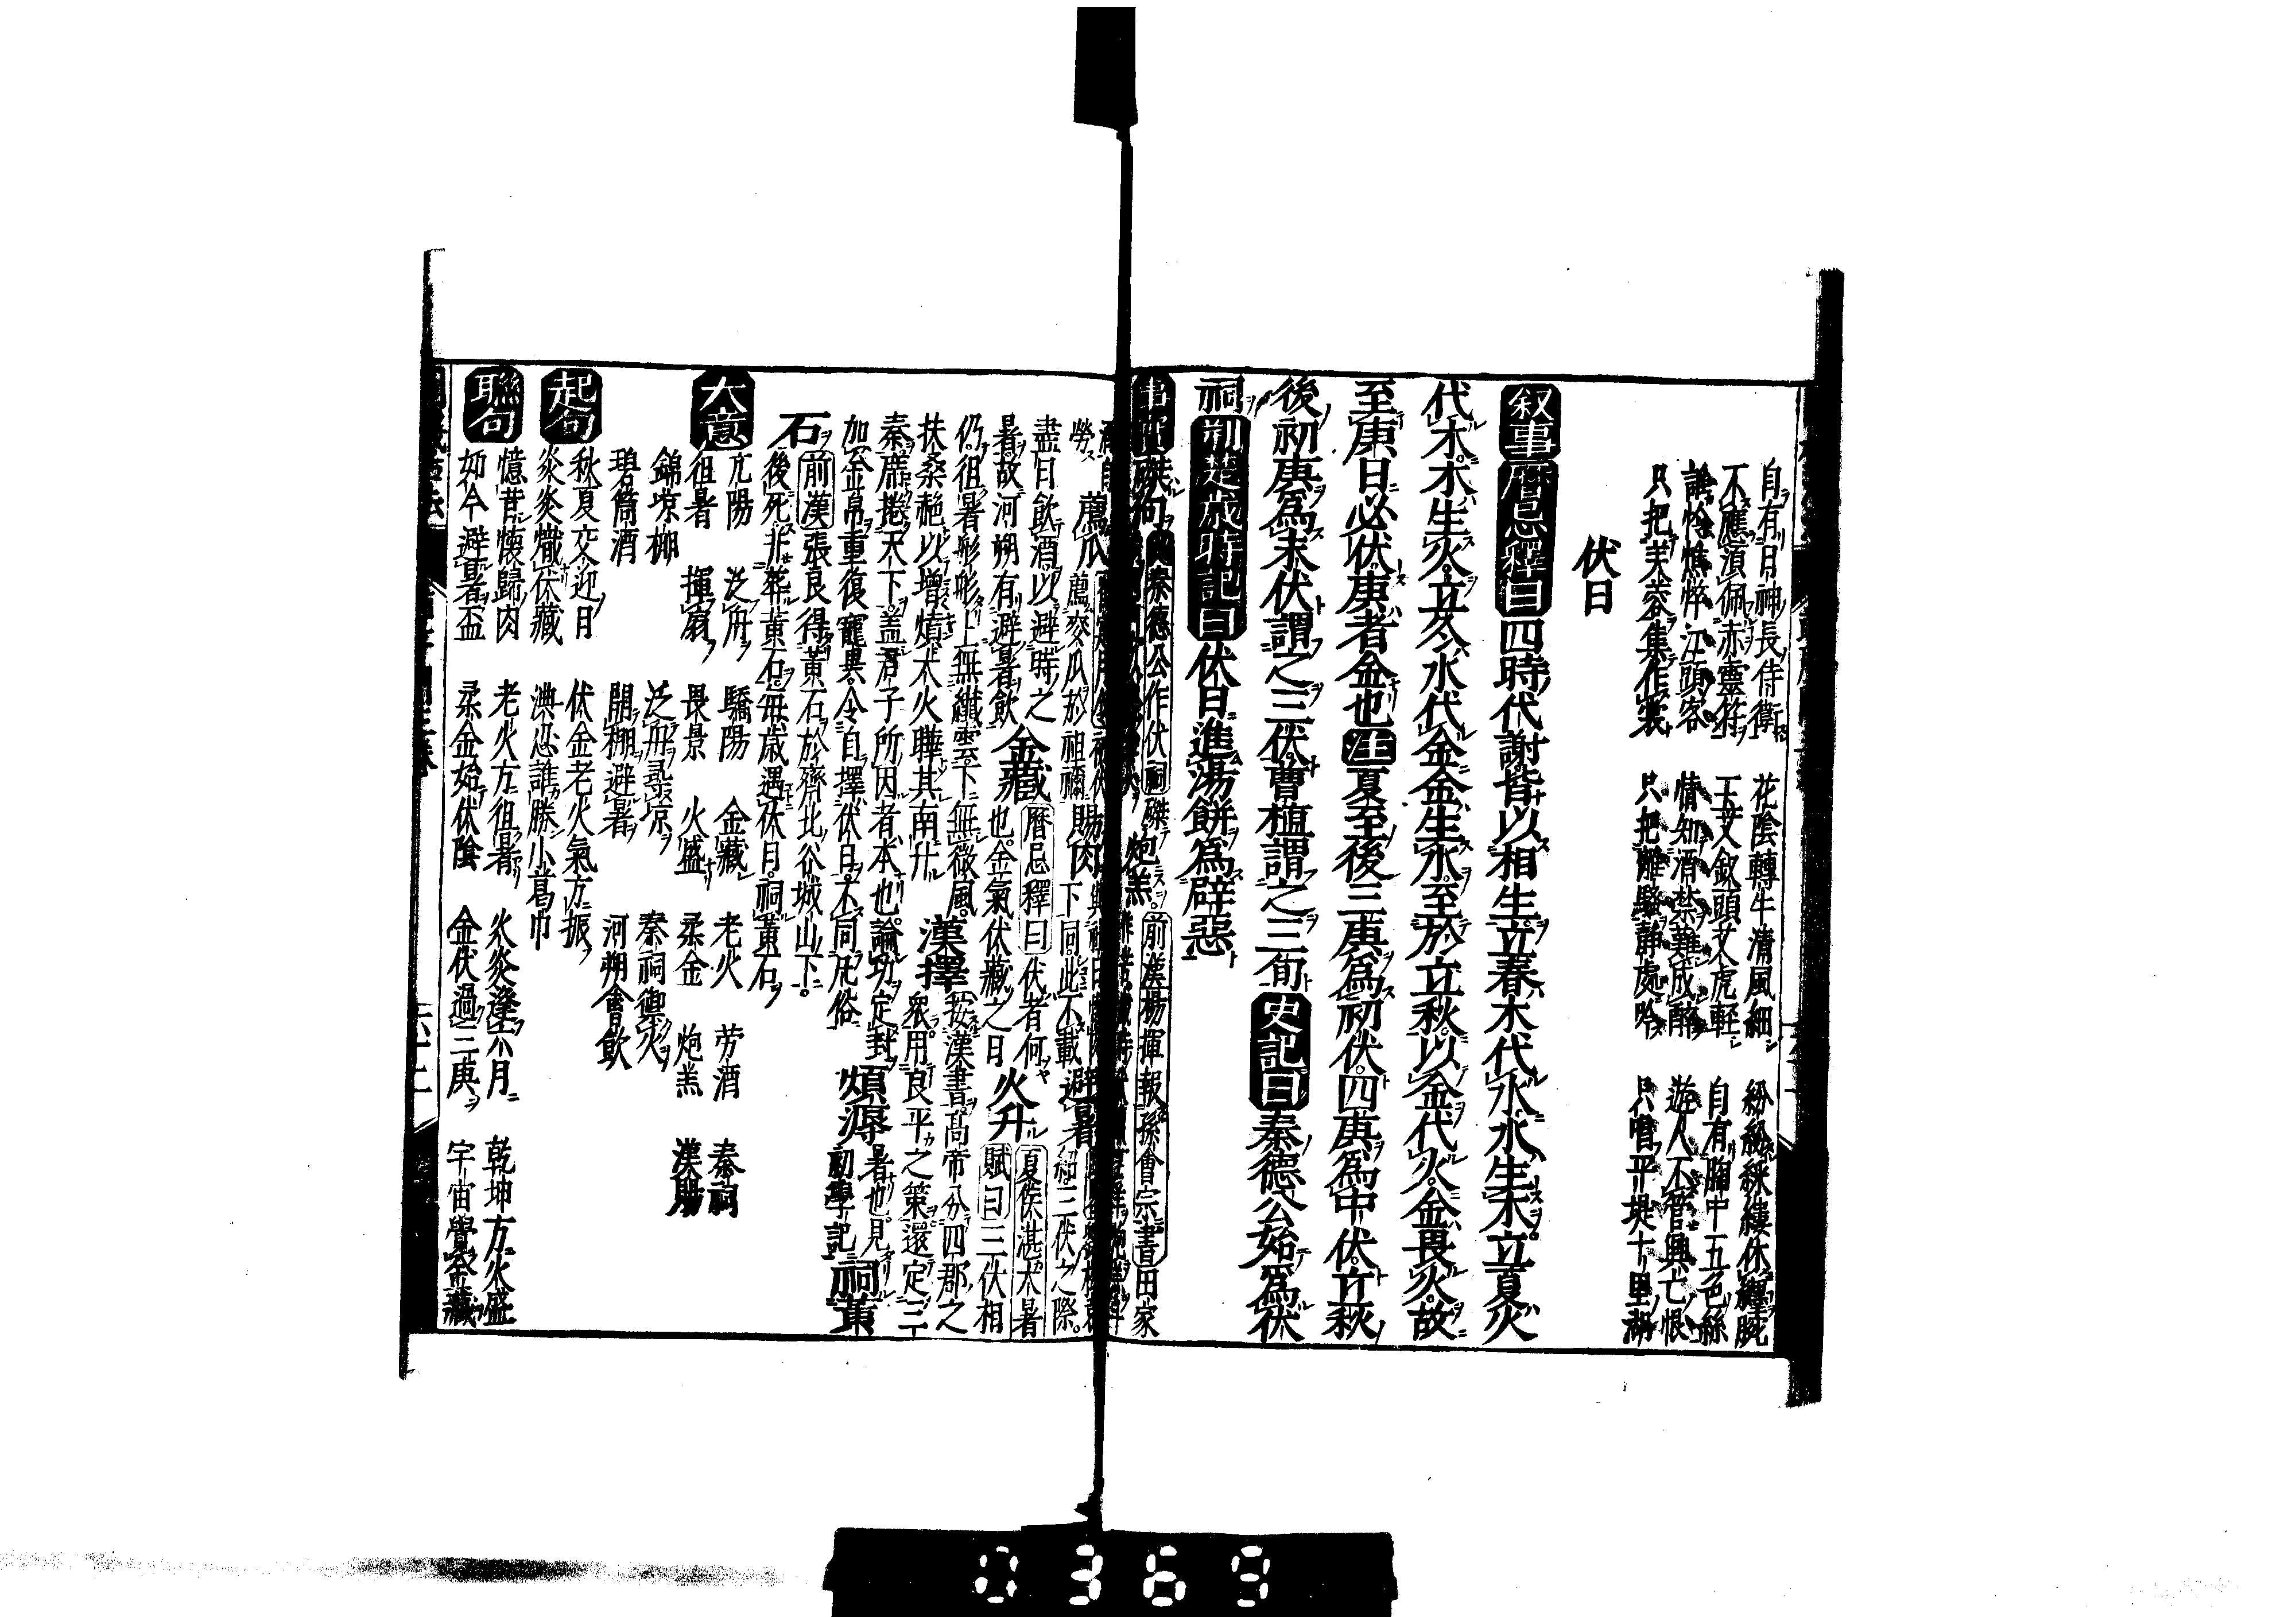 自有日神長侍衛 花陰轉午清風細 紛紛綵縷休纏腕
不應須佩赤靈符 玉釵頭艾虎輕 自有胸中五色絲
憔悴江頭客 情知酒禁難成醉 遊人不管興亡恨
只把芙蓉集作裳 只把離騷静處吟 只唱平堤十里湖
伏日
叙事 曆忌釋曰四時代謝皆以相生立春木代水水生木立夏火
代木木生火立冬水代金金生水至於立秋以金代火金畏火故
至庚日必伏庚者金也注夏至後三庚爲初伏四庚爲中伏立秋
後初庚爲末伏謂之三伏曹植謂之三旬史記曰秦德公始爲伏
祠荆楚歳時記曰伏日進湯餅爲辟惡
秦德公作伏祠磔 炮羔 前漢楊惲報孫會宗書田家
勞 薦瓜 薦麥瓜於祖禰 賜肉 下同此不載 避暑 三伏之際
盡日飲酒以避時之
暑故河朔有避暑飲 金藏 曆忌釋曰伏者何
也金氣伏藏之日 火升 夏侯湛大暑
賦曰三伏相
仍徂暑彤彤上無纖雲下無微風
扶桑赩以增煩大火曄其南升 漢擇 按漢書高帝分四郡之
衆用良平之策還定三
秦席捲天下盖君子所因者本也論功定封
加金帛重復寵異令自擇伏日不同凡俗 煩溽 暑也見
初學記 祠黄
石 前漢張良得黄石於齊北谷城山下
後死并葬黄石毎歳遇伏日祠黄石
大意 亢陽 泛舟 驕陽 金藏 老火 労酒 秦祠
徂暑 揮扇 畏景 火盛 柔金 炮羔 漢賜
錦凉棚 泛舟尋凉 秦祠禦災
碧筒酒 開棚避暑 河朔會飲
起句 秋夏交迎月 伏金老火氣方振
炎炎熾伏藏 淟涊誰勝小葛巾
聯句 憶昔懷歸肉 老火方徂暑 火炎逢六月 乾坤方火盛
如今避暑盃 柔金始伏陰 金伏過三庚 宇宙覺金藏
0369